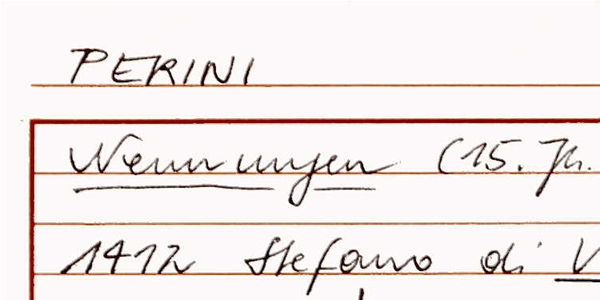 PERINI
Nennungen (15. Jh.
1412 Stefano di V